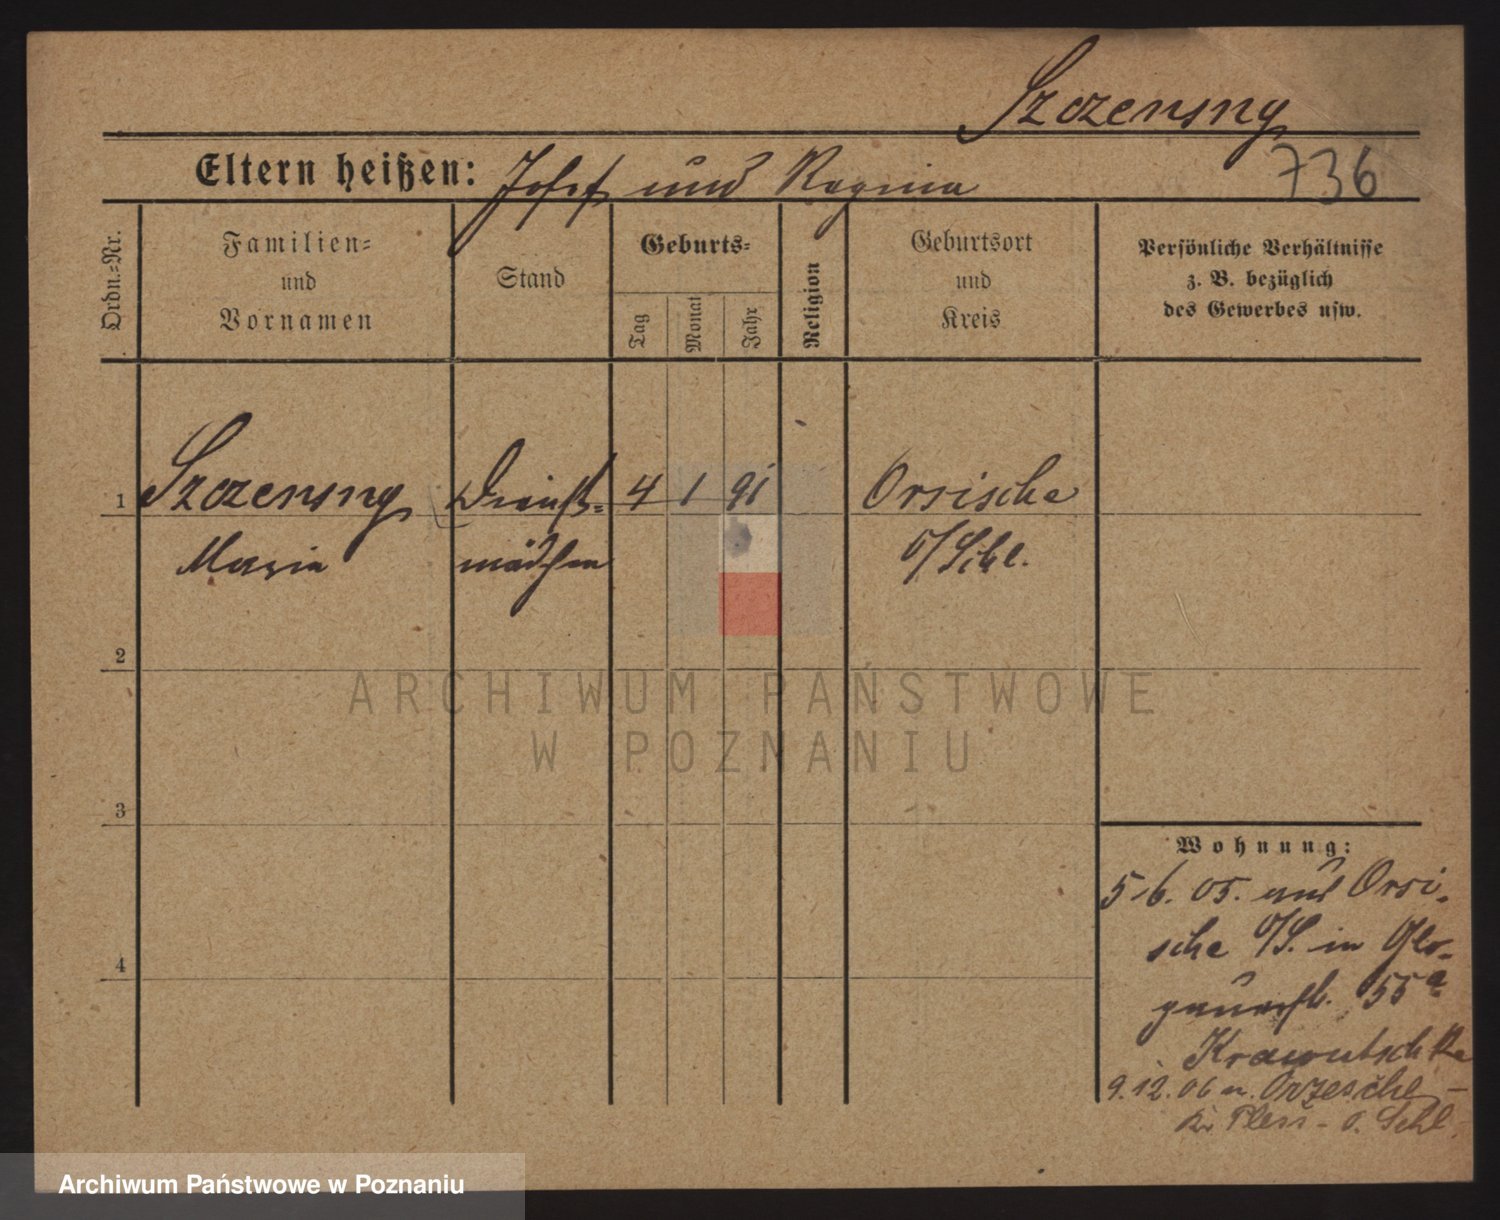 Szczensny
736
Eltern heißen: Josef und Regina
Ordn.=Nr.
Familien=
und
Vornamen
Stand
Geburts=
Tag
Monat
Jahr
Religion
Geburtsort
und
Kreis
Persönliche Verhältnisse
z. B. bezüglich
des Gewerbes usw.
1 Szczensny Dienst= 4 1 91 Orsische
Maria mädchen O/Schl.
2
3
4
Wohnung:
5.6.05. aus Orsi-
sche O/S. in Glo-
gauerstr. 55a
Krawutschke
9.12.06 n. Orzesche -
Kr Pless - O. Schl.
ARCHIWUM PAŃSTWOWE
W POZNANIU
Archiwum Państwowe w Poznaniu